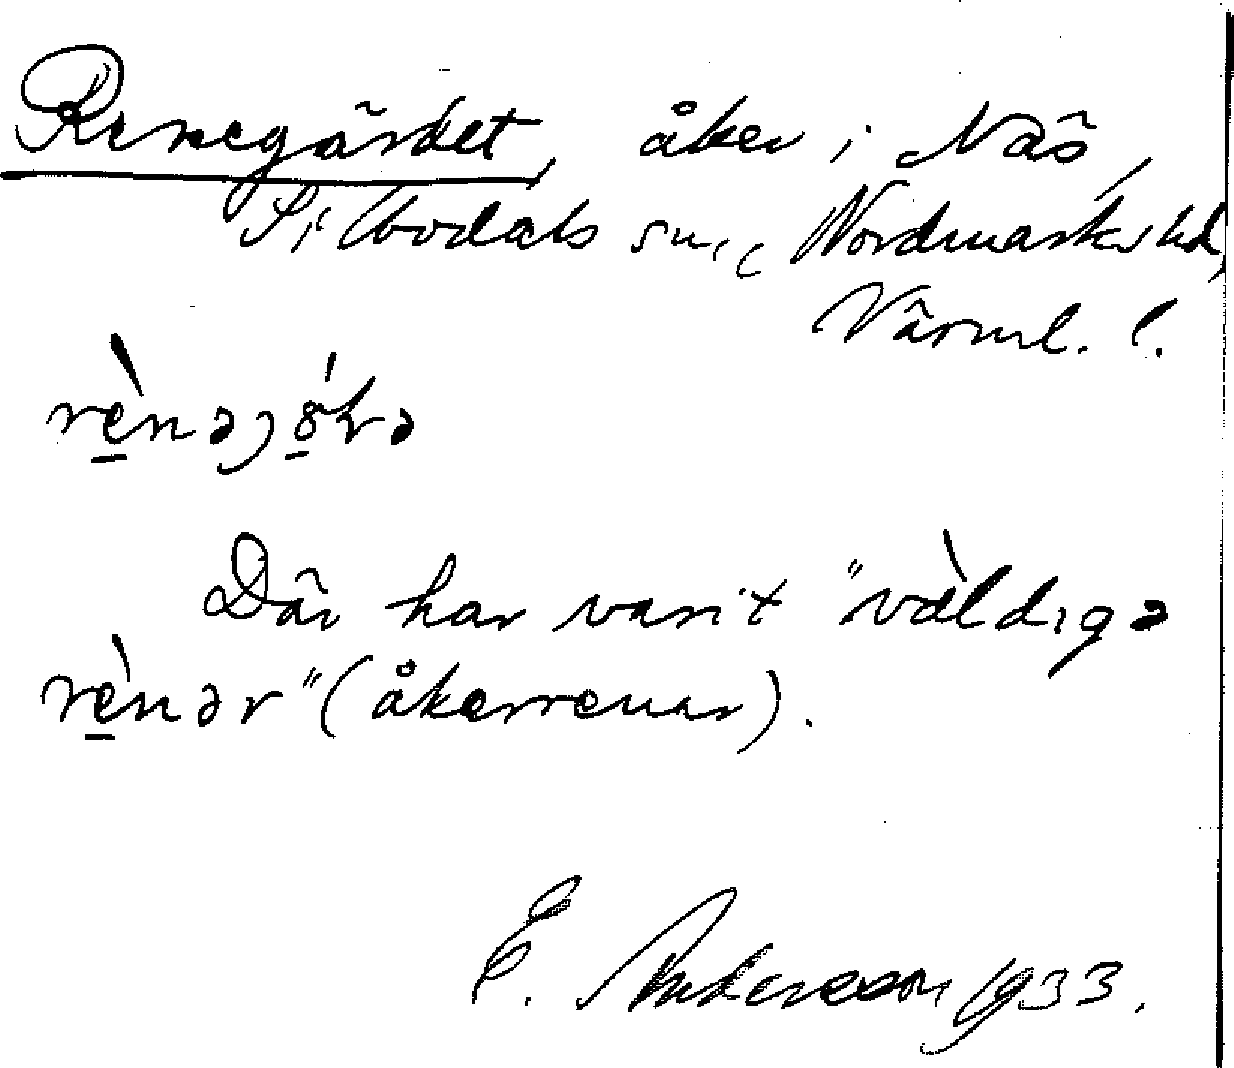 Renegärdet, åker i Näs,
Silbodals sn, Nordmarks hd,
Värml. l.
rè̱nəjó̱ɽə
Där har varit "vàldıgə
rè̱nər" (åkerrenar).
E. Andersson 1933.